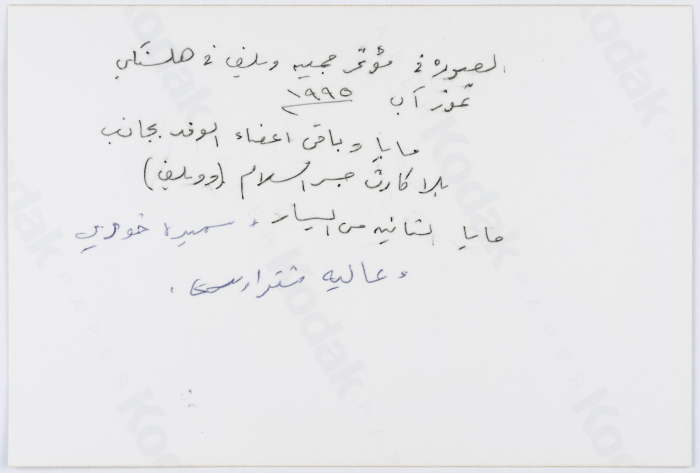 الصورة في مؤتمر جمعية ويلف في هلسنكي
تموز آب ١٩٩٥
مايا وباقي اعضاء الوفد بجانب
يلا كارت جسر السلام (وويلف)
مايا الثانيه من اليسار، سميرة خوري
و عاليه
Kodak
PAPER
Kodak
PAPER
Kodak
Kodak
Kodak
Kodak